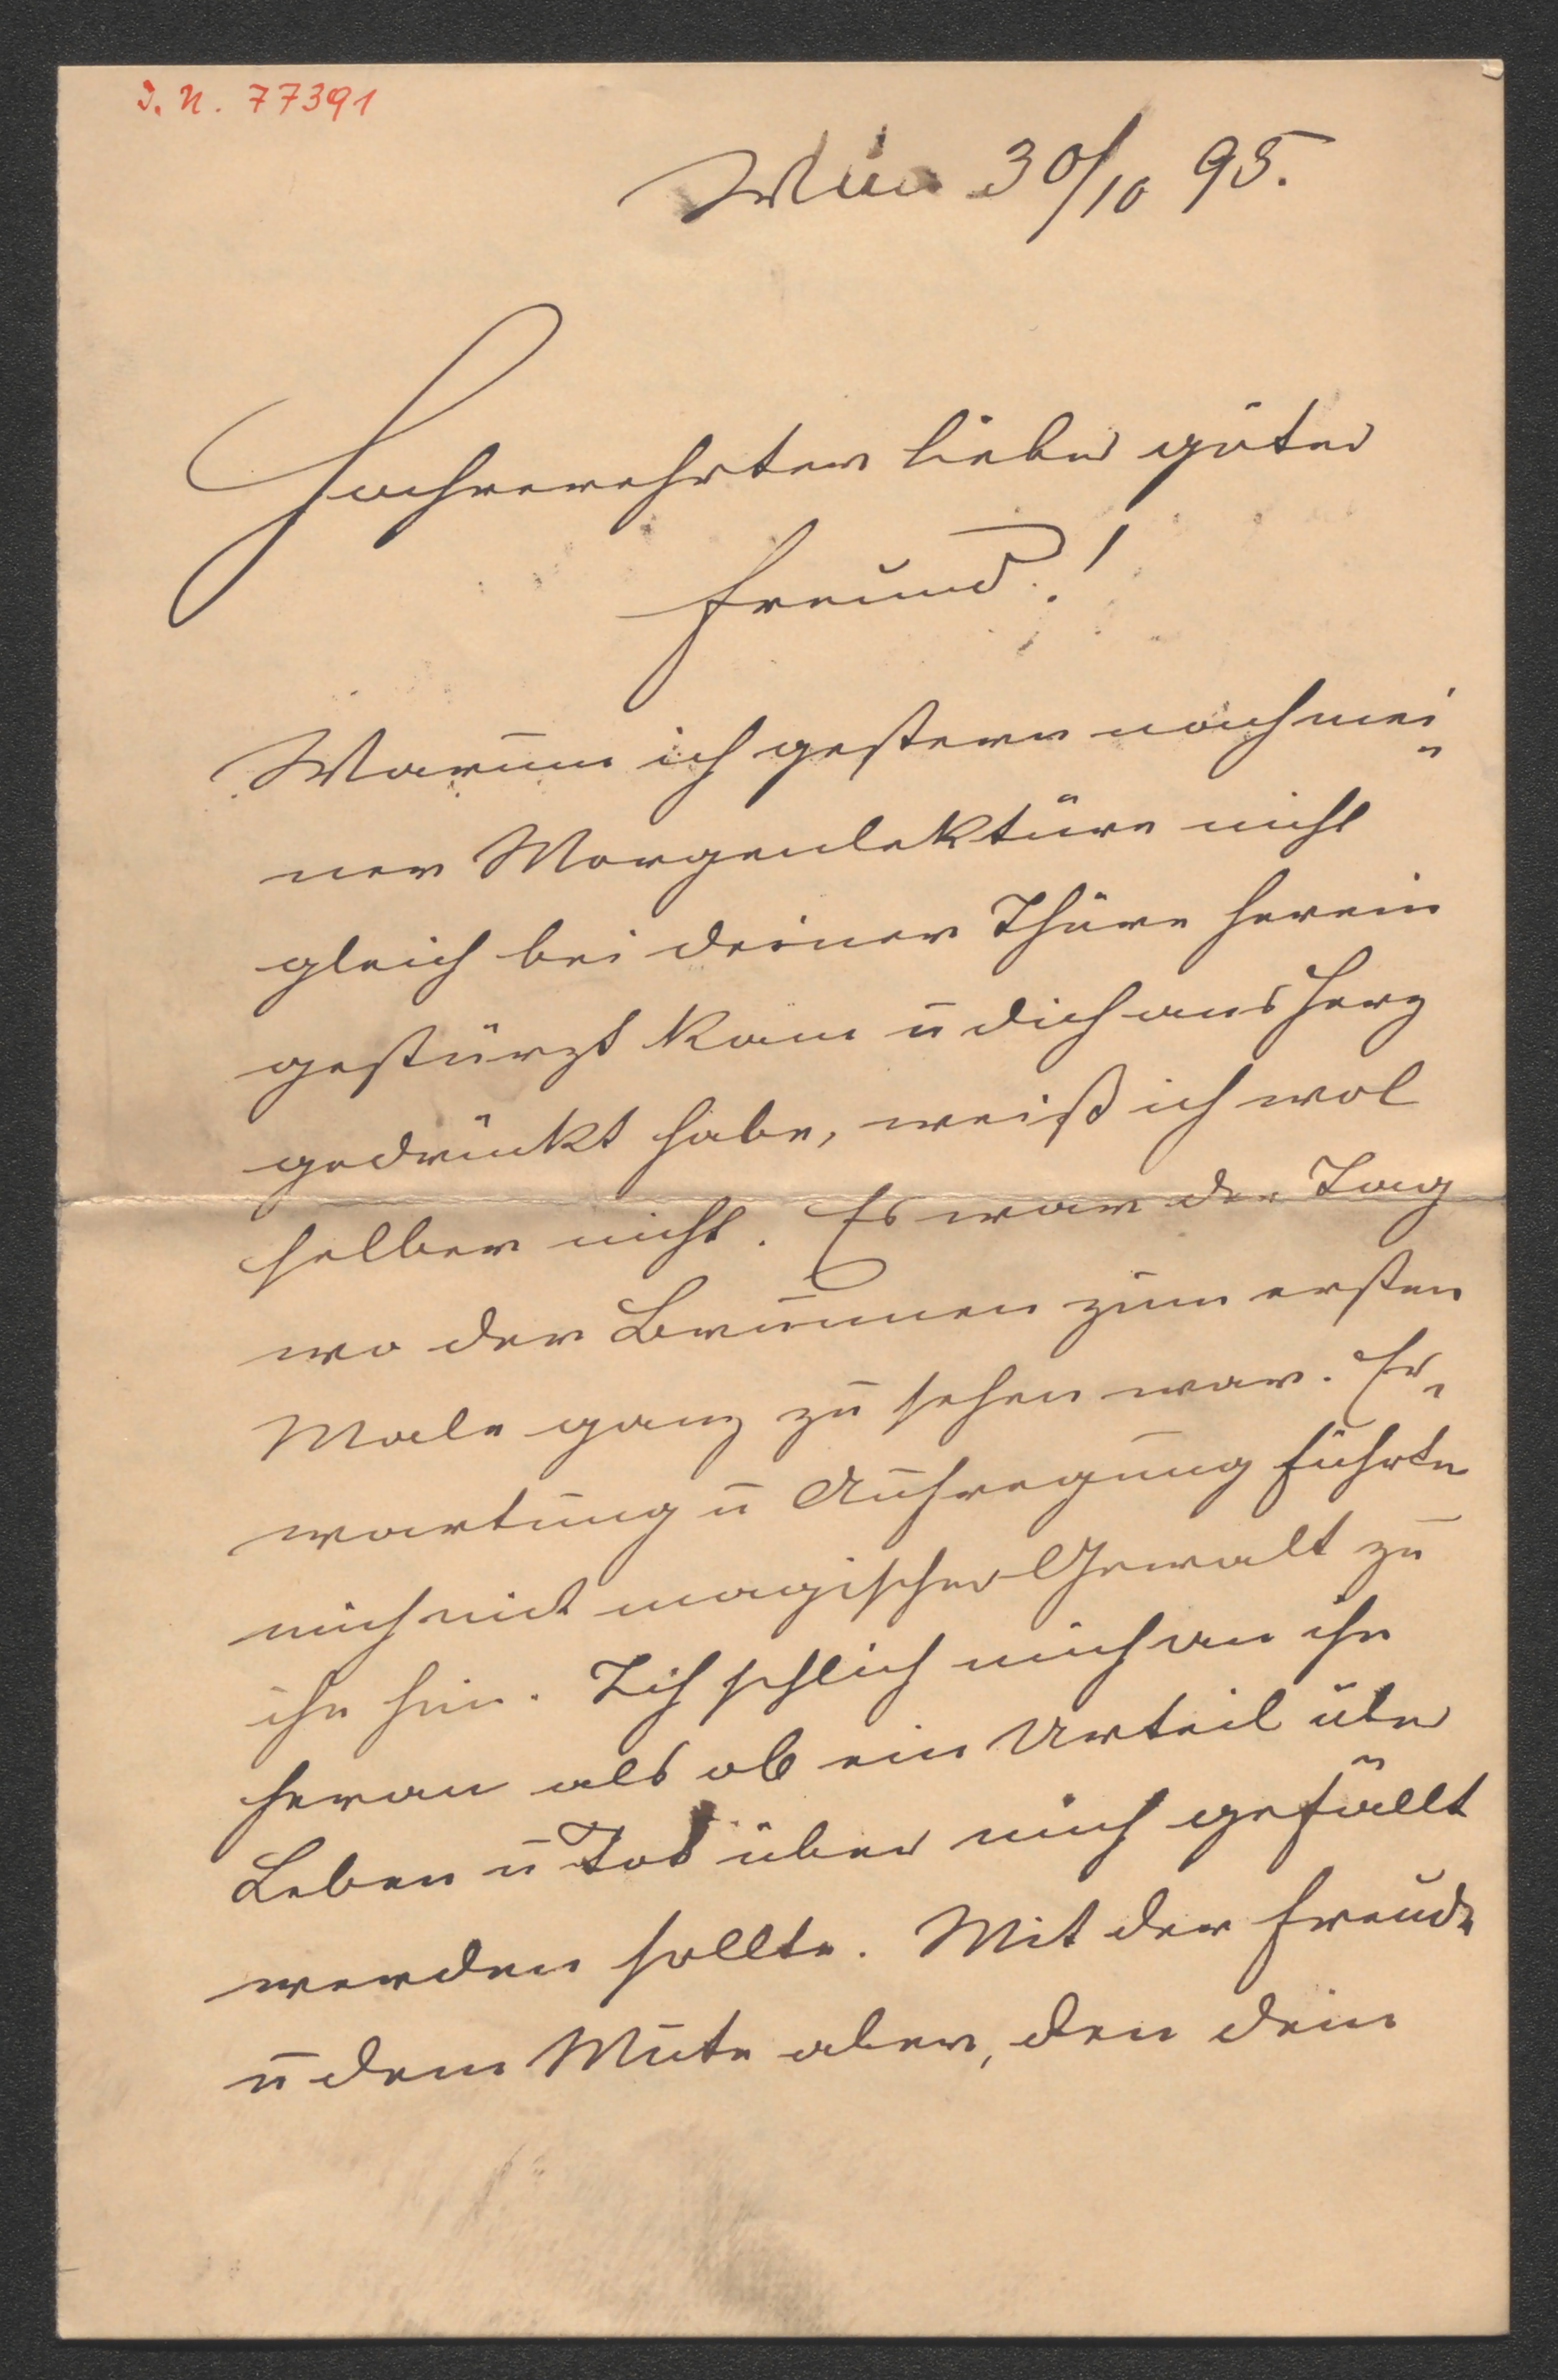 J. N. 77391
Wien 30/10 95.
Hochverehrter lieber guter
Freund!
Warum ich gestern nach mei„
ner Morgenlektüre nicht
gleich bei deiner Thüre herein
gestürzt kam u dich ans Herz
gedrückt habe, weiß ich wol
selber nicht. Es war der Tag
wo der Brunnen zum ersten
Male ganz zu sehen war. Er„
wartung u Aufregung führte
mich mit magischer Gewalt zu
ihm hin. Ich schlich mich an ihn
heran als ob ein Urteil über
Leben u Tod über mich gefällt
werden sollte. Mit der Freude
u dem Mute aber, den dein